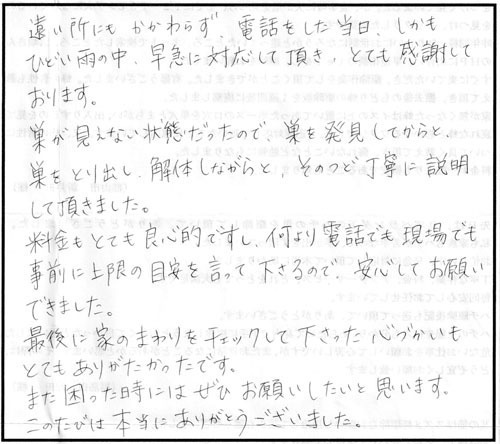 遠い所にもかかわらず、電話をした当日、しかも
ひどい雨の中、早急に対応して頂き、とても感謝して
おります。
巣が見えない状態だったので、巣を発見してからと、
巣をとり出し、解体しながらと、そのつど丁寧に説明
して頂きました。
料金もとても良心的ですし、何より電話でも現場でも
事前に上限の目安を言って下さるので、安心してお願い
できました。
最後に家のまわりをチェックして下さった心づかいも
とてもありがたかったです。
また困った時にはぜひお願いしたいと思います。
このたびは本当にありがとうございました。